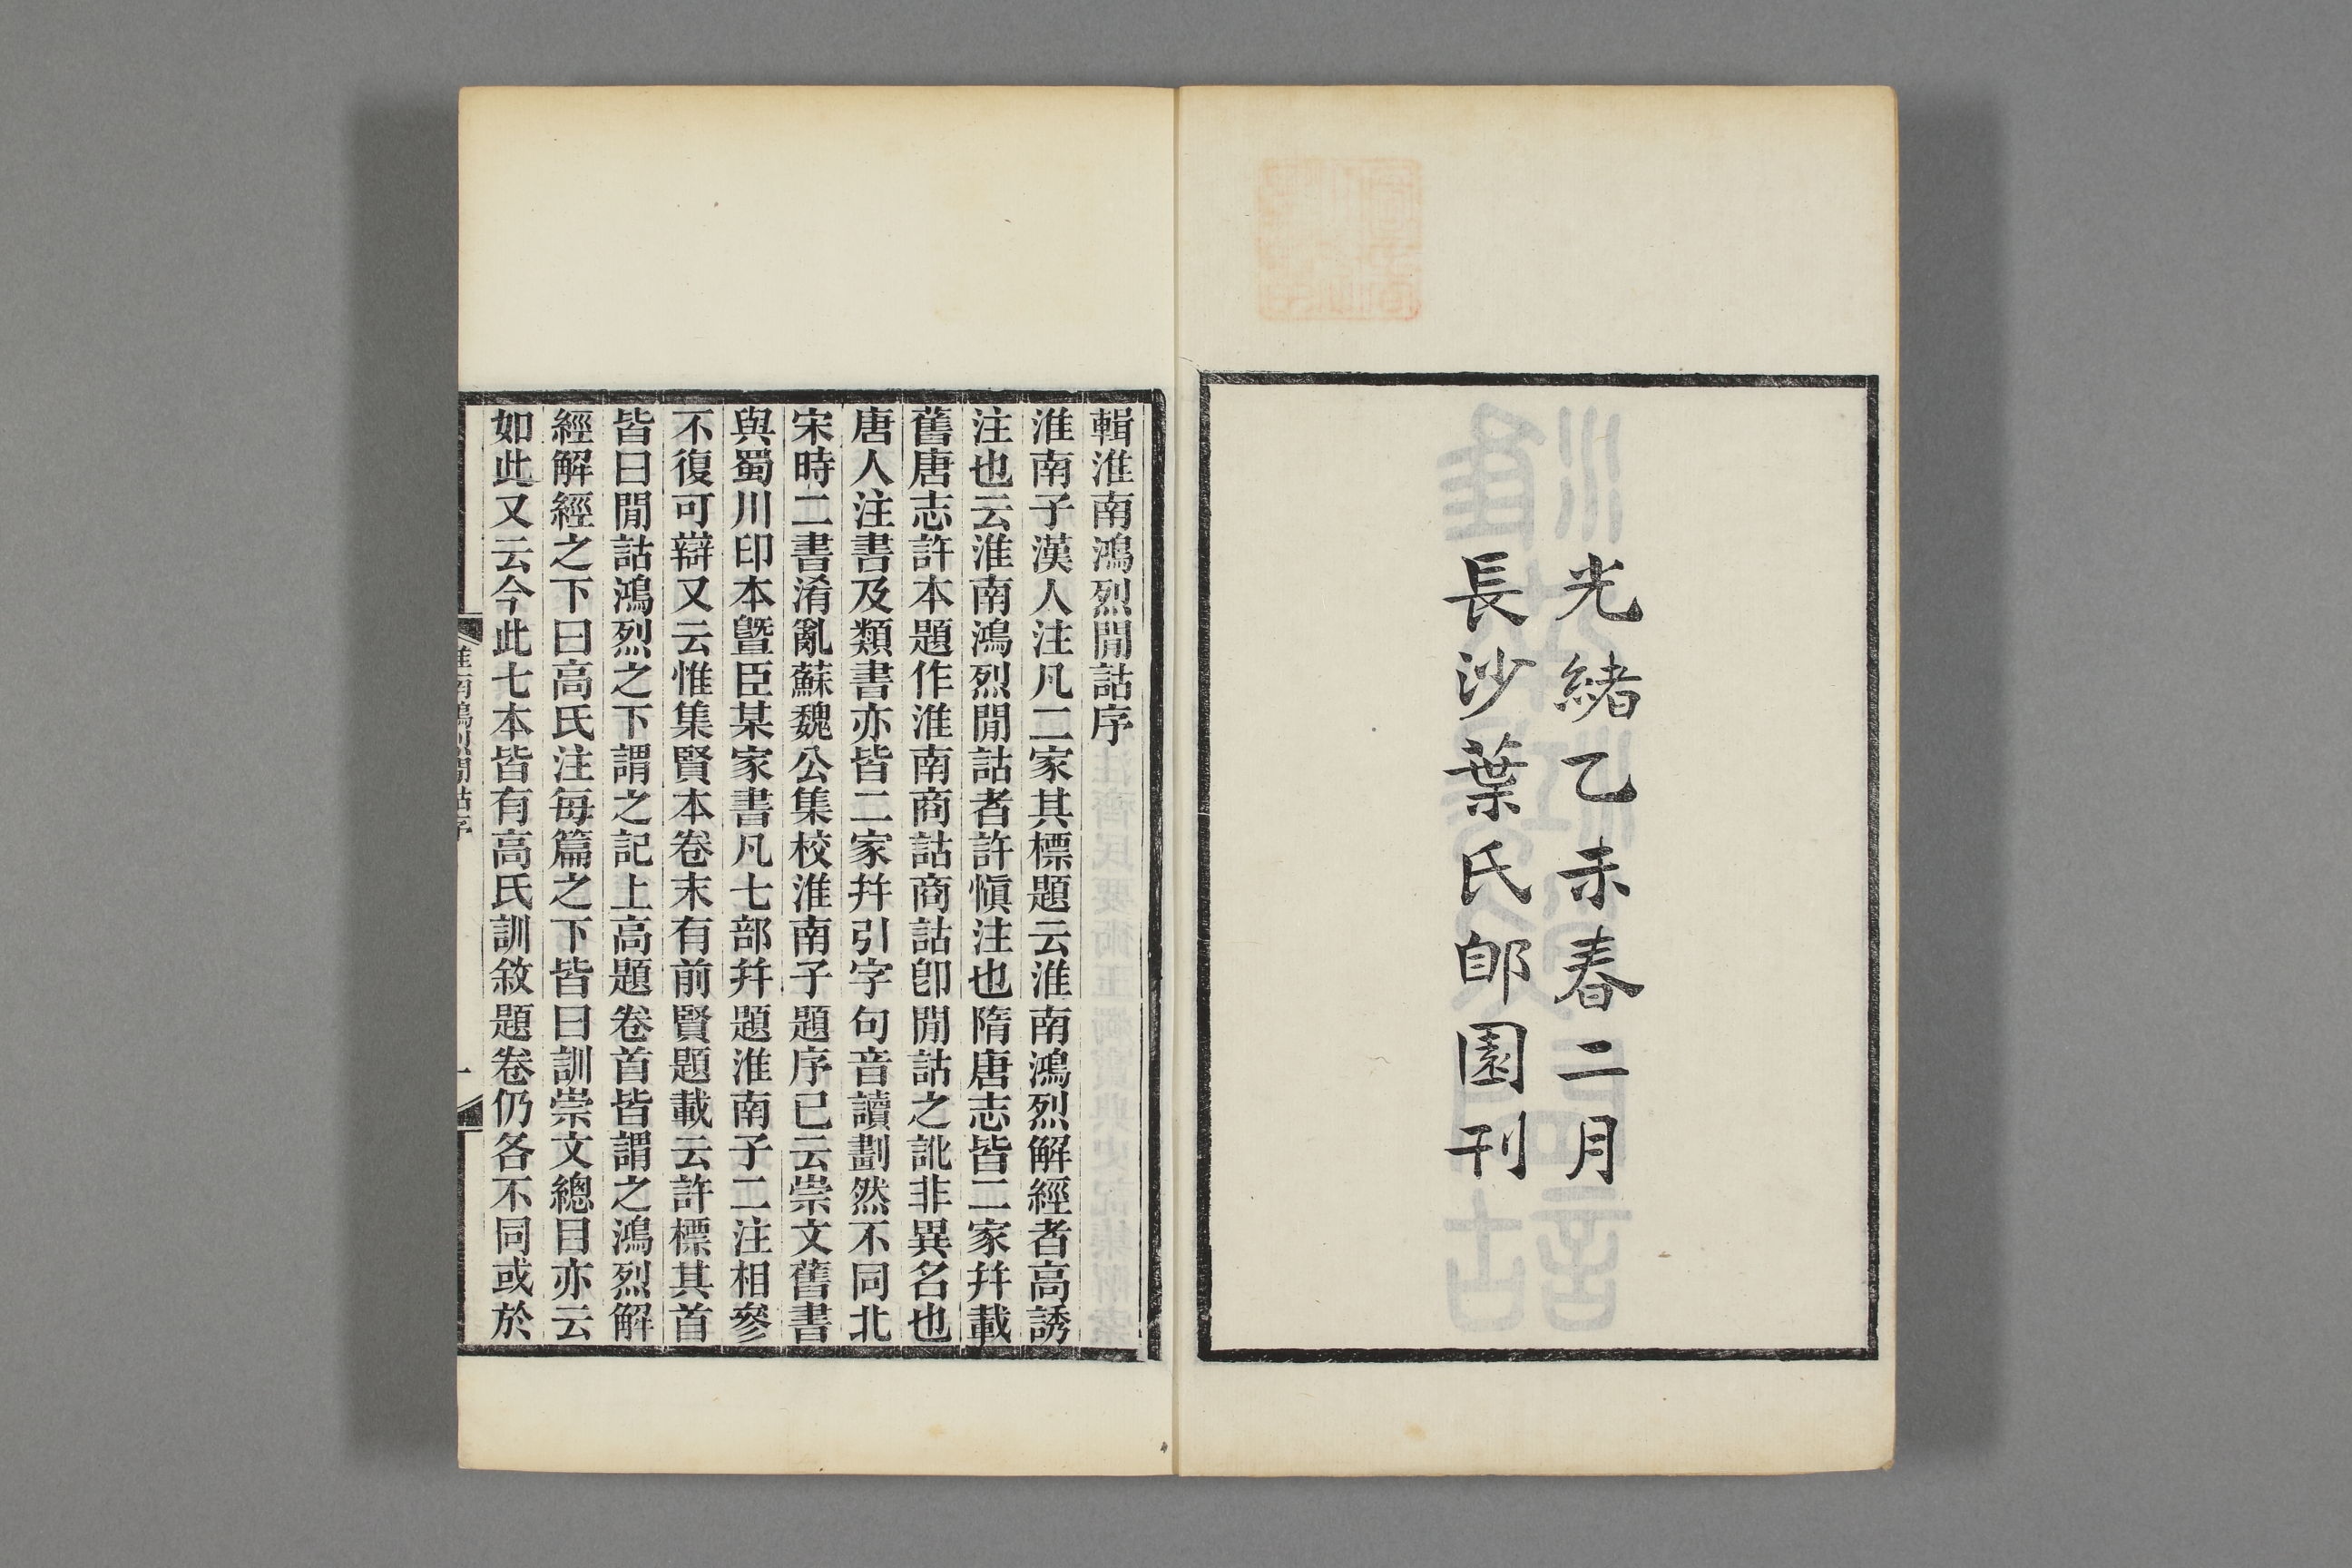 光緒乙未春二月
長沙葉氏郋園刊
輯淮南鴻烈閒詁序
淮南子漢人注凡二家其標題云淮南鴻烈解經者高誘
注也云淮南鴻烈閒詁者許愼注也隋唐志皆二家幷載
舊唐志許本題作淮南商詁商詁卽閒詁之訛非異名也
唐人注書及類書亦皆二家幷引字句音讀劃然不同北
宋時二書淆亂蘇魏公集校淮南子題序已云崇文舊書
與蜀川印本曁臣某家書凡七部幷題淮南子二注相參
不復可辯又云惟集賢本卷末有前賢題載云許標其首
皆曰閒詁鴻烈之下謂之記上高題卷首皆謂之鴻烈解
經解經之下曰高氏注每篇之下皆曰訓崇文總目亦云
如此又云今此七本皆有高氏訓敘題卷仍各不同或於
淮南鴻烈閒詁序
一